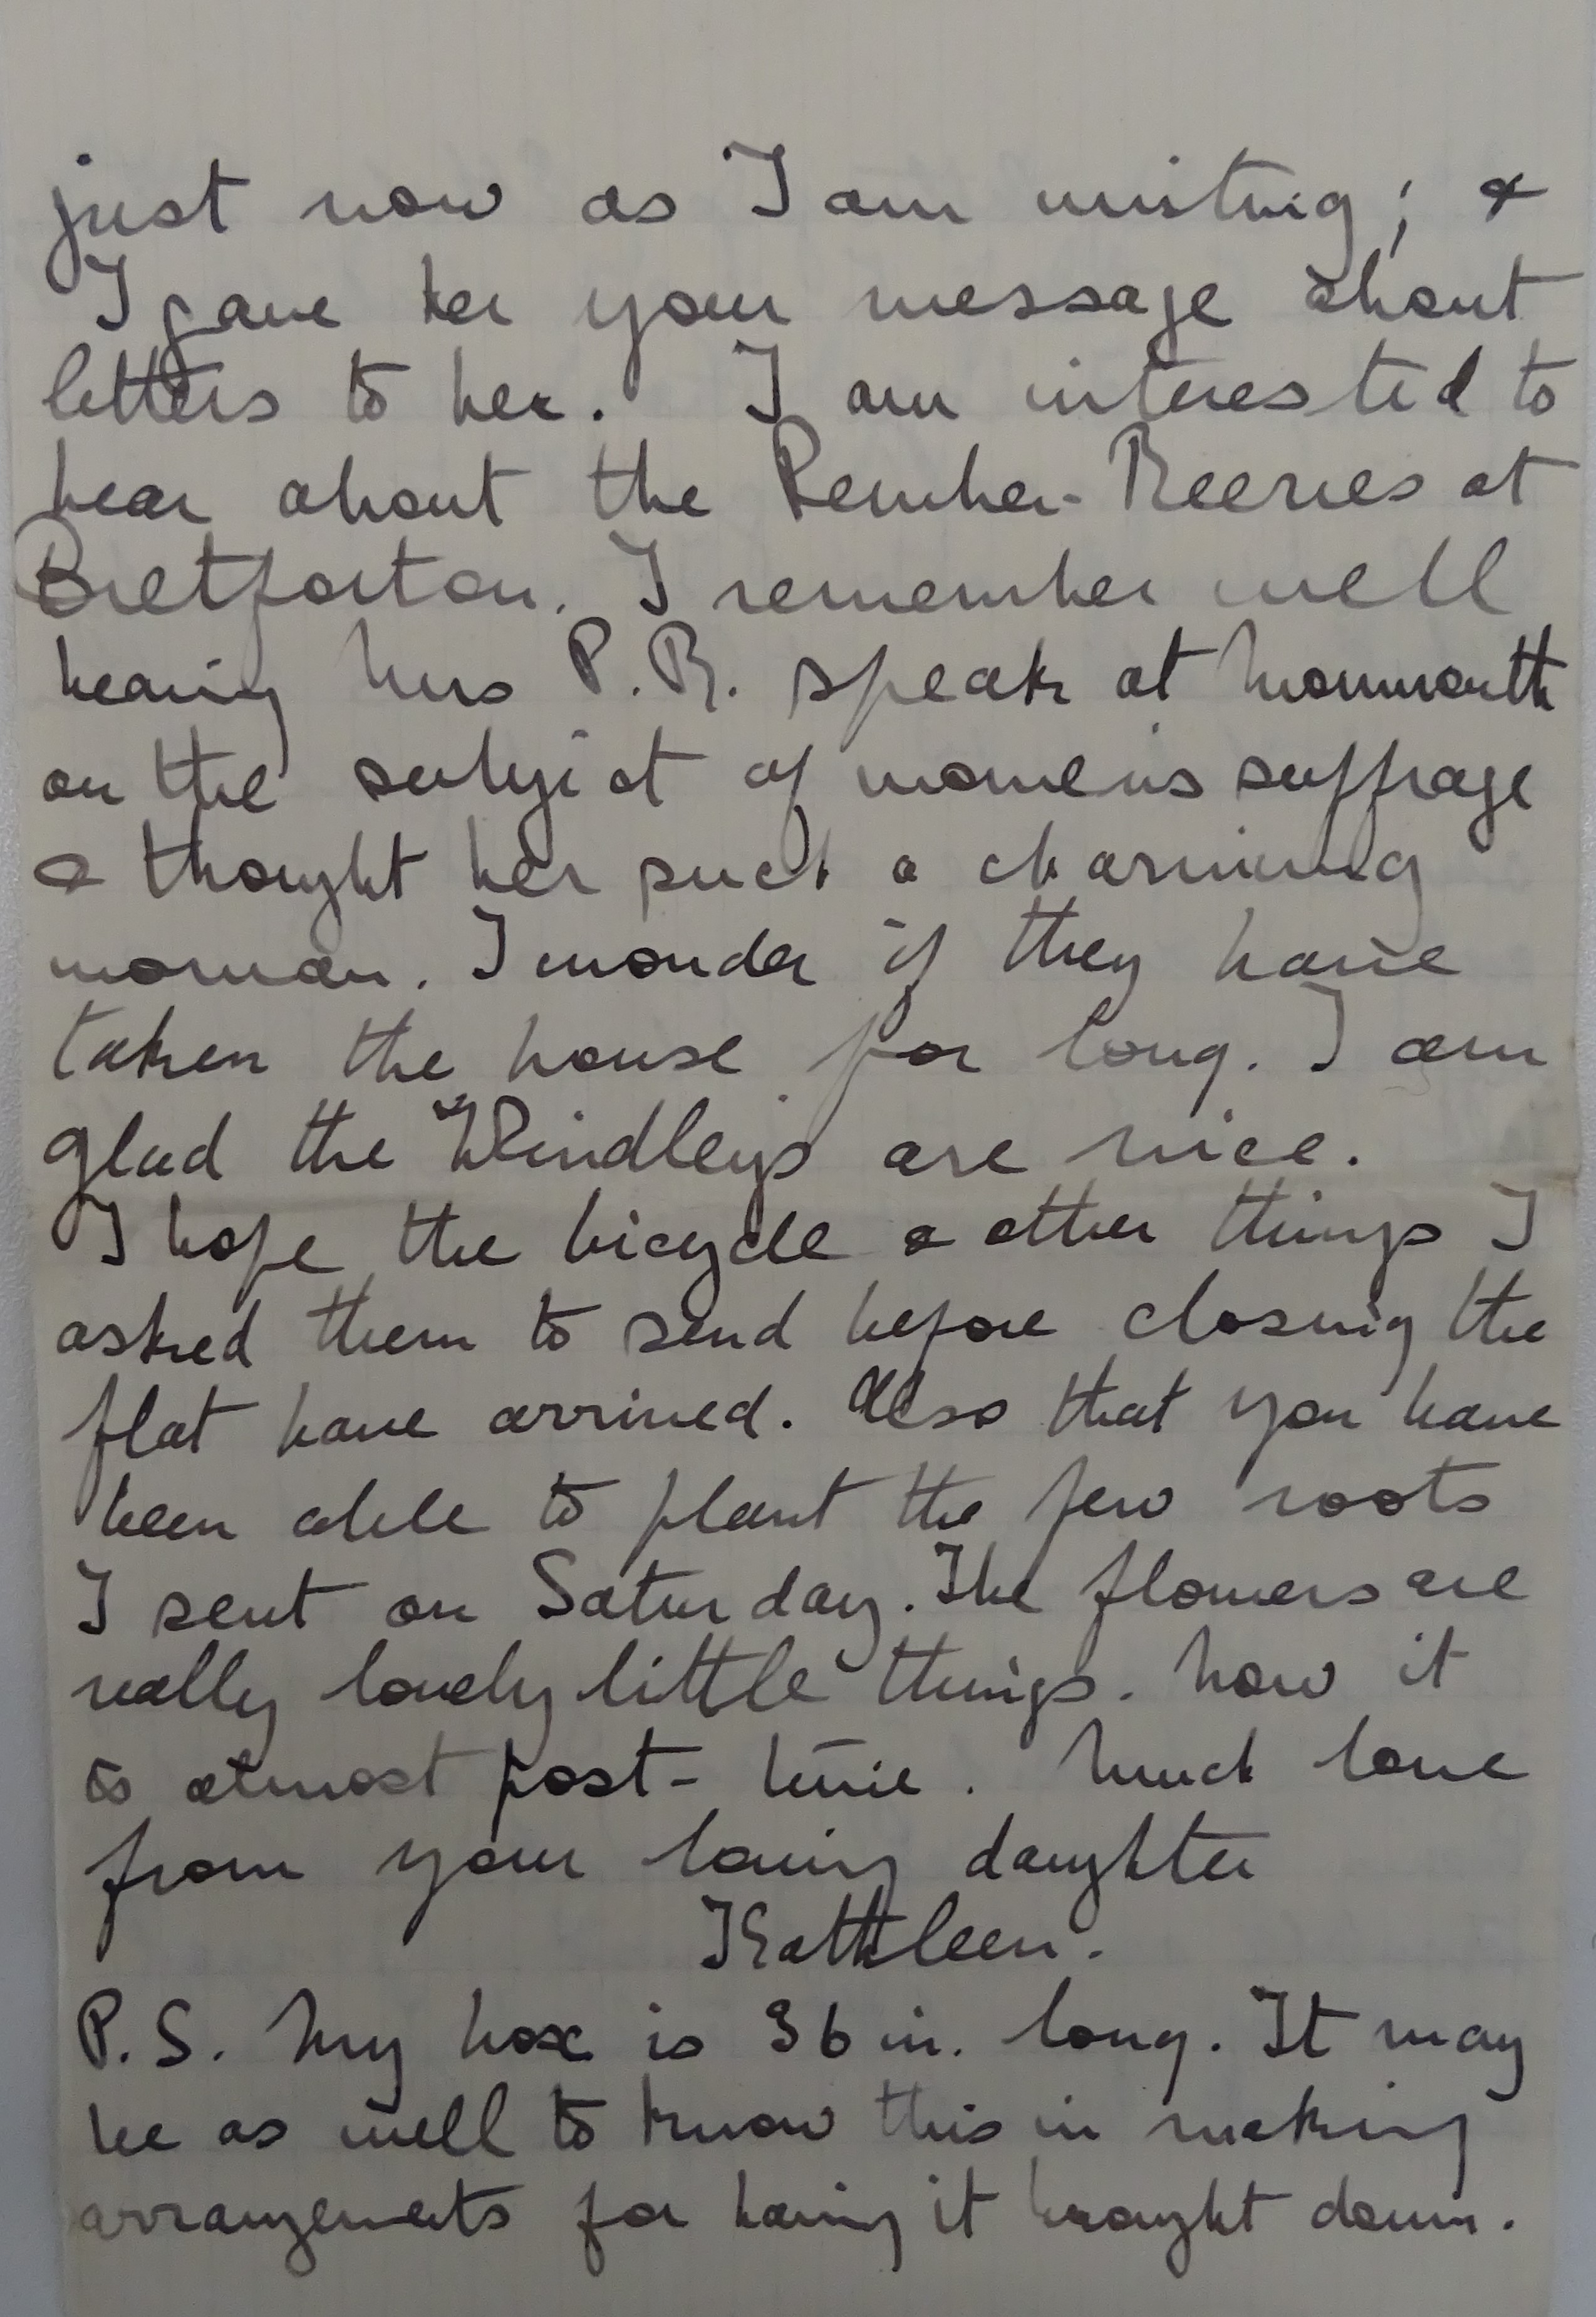 just now as I am writing; &
I gave her your message about
letters to her. I am interested to
hear about the Pember-Reeves at
Bretforton. I remember well
hearing Mrs P.R. speak at Monmouth
on the subject of women's suffrage
& thought her such a charming
woman. I wonder if they have
taken the house for long. I am
glad the Windleys are nice.
I hope the bicycle & other things I
asked them to send before closing the
flat have arrived. Also that you have
been able to plant the few roots
I sent on Saturday. The flowers are
really lovely little things. Now it
is almost post-time. Much love
from your loving daughter
Kathleen.
P.S. My box is 36 in. long. It may
be as well to know this in making
arrangements for having it brought down.